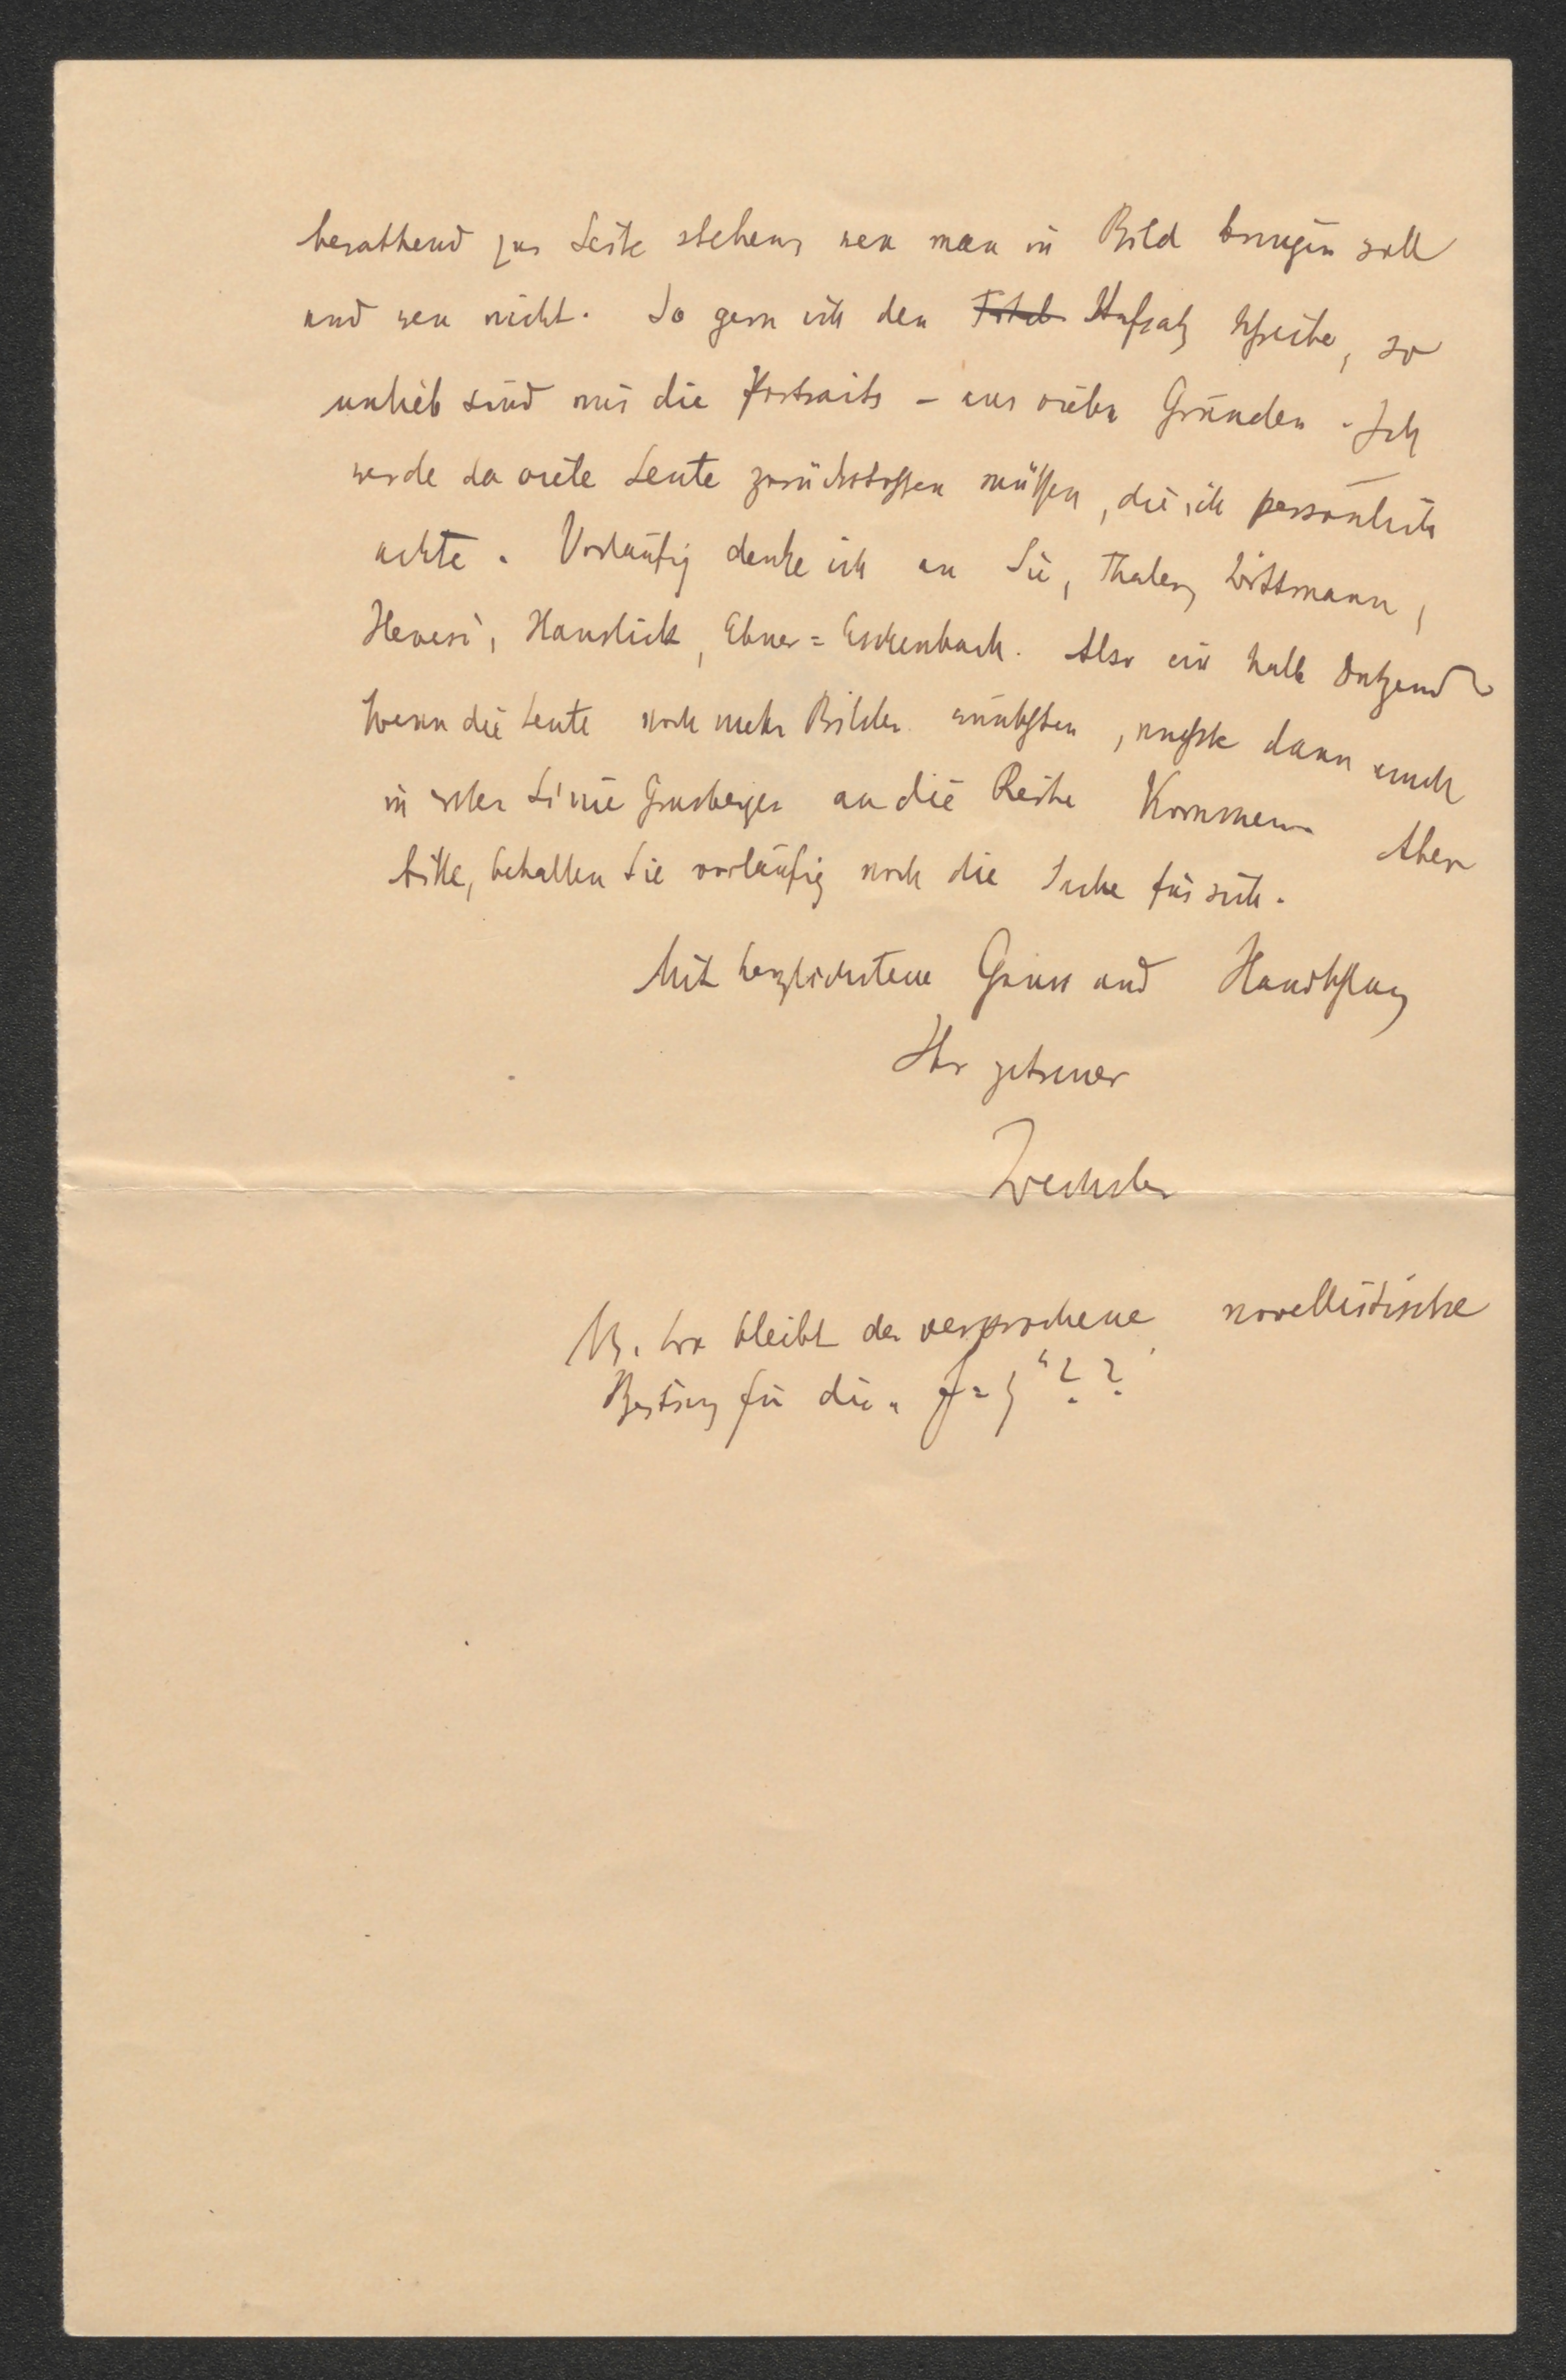 berathend zur Seite stehen, wen man in Bild bringen soll
und wen nicht. So gern ich den Aufsatz schreibe, so
unlieb sind mir die Portraits – aus vielen Gründen. Ich
werde da viele Leute zurückstossen müssen, die ich persönlich
achte. Vorläufig denke ich an Sie, Thaler, Wittmann,
Hevesi, Hanslick, Ebner=Eschenbach. Also ein halb Dutzend.
Wenn die Leute noch mehr Bilder wünschten, müsste dann auch
in erster Linie Grasberger an die Reihe kommen. Aber
bitte, behalten Sie vorläufig noch die Sache für sich.
Mit herzlichstem Gruss und Handschlag
Ihr getreuer
Wechsler
NB. Wo bleibt der versprochene novellistische
Beitrag für die „ “??